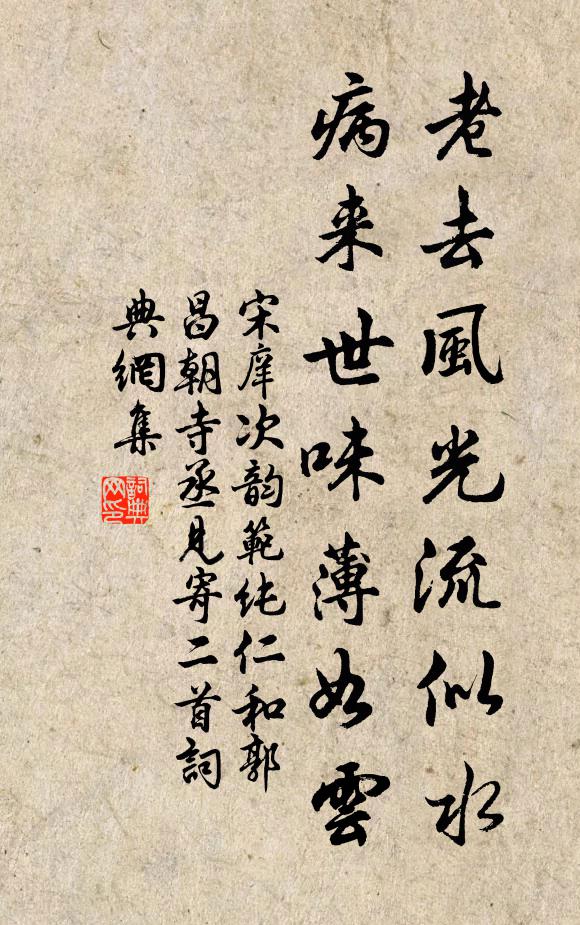 老去風光流似水
病来世味薄如雲
宋庠次韵範純仁和郭
昌朝寺丞見寄二首詞
典網集
詞典
网印